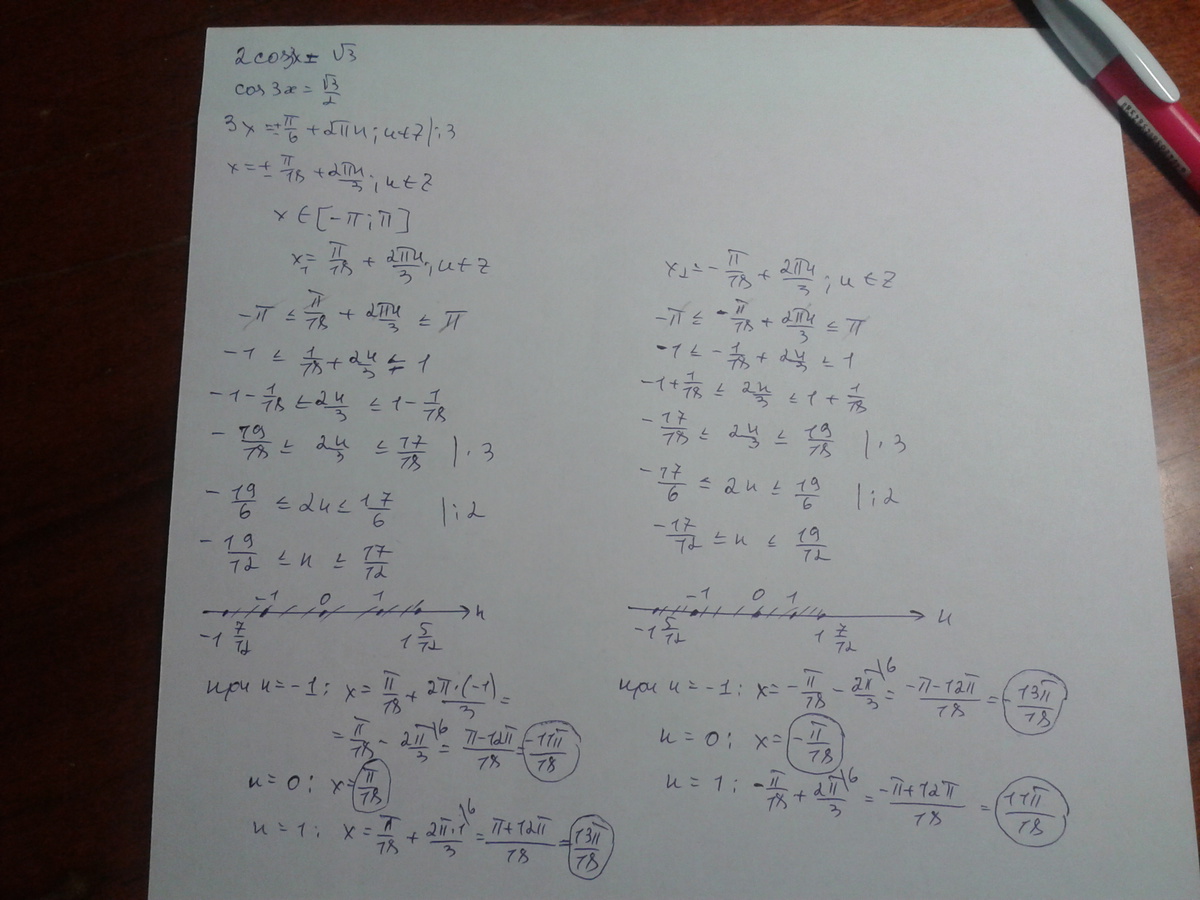 2cos3x = √3
cos 3x = √3/2
3x = ± π/6 + 2πn; n∈Z |:3
x = ± π/18 + 2πn/3; n∈Z
x ∈ [-π; π]
x₁ = π/18 + 2πn/3; n∈Z
-π ≤ π/18 + 2πn/3 ≤ π
-1 ≤ 1/18 + 2n/3 ≤ 1
-1 - 1/18 ≤ 2n/3 ≤ 1 - 1/18
-19/18 ≤ 2n/3 ≤ 17/18 |·3
-19/6 ≤ 2n ≤ 17/6 |:2
-19/12 ≤ n ≤ 17/12
-1 0 1 n
-1 7/12 1 5/12
при n = -1: x = π/18 + 2π·(-1)/3 =
= π/18 - 2π/3 \6 = π-12π/18 = -11π/18
n = 0: x = π/18
n = 1: x = π/18 + 2π·1/3 \6 = π+12π/18 = 13π/18
x₂ = -π/18 + 2πn/3; n∈Z
-π ≤ -π/18 + 2πn/3 ≤ π
-1 ≤ -1/18 + 2n/3 ≤ 1
-1 + 1/18 ≤ 2n/3 ≤ 1 + 1/18
-17/18 ≤ 2n/3 ≤ 19/18 |·3
-17/6 ≤ 2n ≤ 19/6 |:2
-17/12 ≤ n ≤ 19/12
-1 0 1 n
-1 5/12 1 7/12
при n = -1: x = -π/18 - 2π/3 \6 = -π-12π/18 = -13π/18
n = 0: x = -π/18
n = 1: -π/18 + 2π/3 \6 = -π+12π/18 = 11π/18